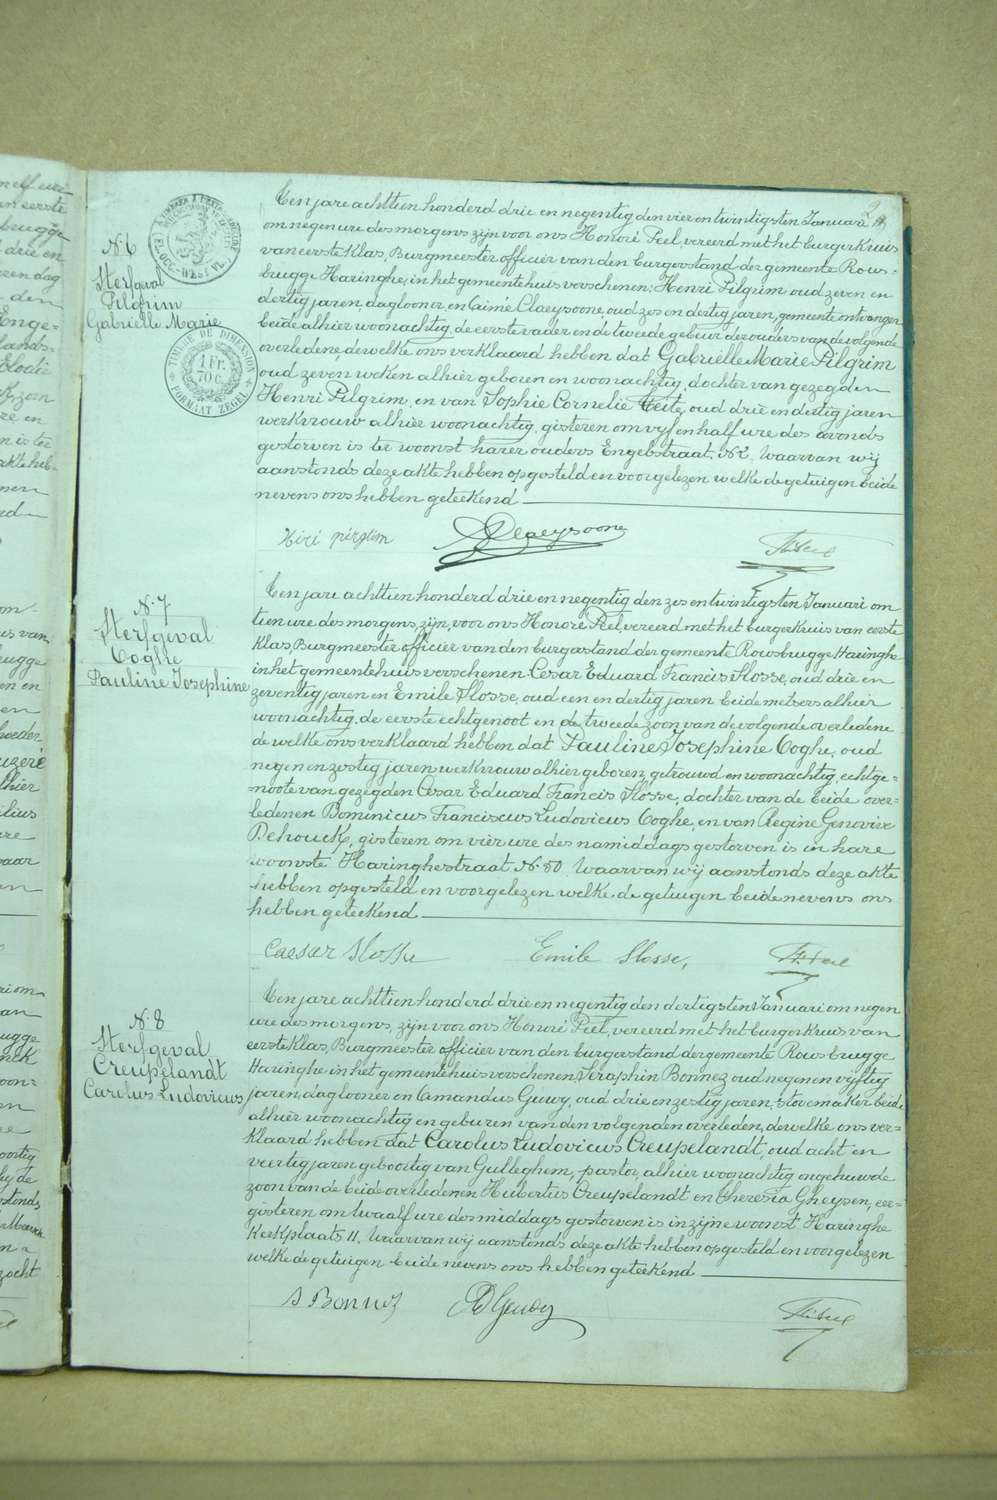 2
N. 6
Sterfgeval
Pilgrim
Gabrielle Marie
TIMBRE DE DIMENSION
1 FR.
70 C.
FORMAAT ZEGEL
Een jare achttien honderd drie en negentig den vier en twintigsten Januari
om negen ure des morgens zijn voor ons Honoré Peel, vereerd met het burgerkruis
van eerste klas, Burgmeester officier van den burgerstand der gemeente Rous-
brugge Haringhe, in het gemeentehuis verschenen: Henri Pilgrim oud zeven en
dertig jaren, daglooner en Aimé Claeysoone, oud zes en dertig jaren, gemeente ontvanger
beide alhier woonachtig, de eerste vader en de tweede gebuur der ouders van de volgende
overledene, derwelke ons verklaard hebben dat Gabrielle Marie Pilgrim
oud zeven weken alhier geboren en woonachtig, dochter van gezegden
Henri Pilgrim, en van Sophie Cornelie Feite, oud drie en dertig jaren
werkvrouw alhier woonachtig, gisteren om vyf en half ure des avonds
gestorven is ter woonst harer ouders Engelstraat, N. 2, Waarvan wij
aanstonds deze akte hebben opgesteld en voorgelezen welke de getuigen beide
nevens ons hebben geteekend
Hiri pirgrim Claeysoone H. Peel
N. 7
Sterfgeval
Coghe
Pauline Josephine
Een jare achttien honderd drie en negentig den zes en twintigsten Januari om
tien ure des morgens, zijn, voor ons Honoré Peel, vereerd met het burgerkruis van eerste
klas, Burgmeester officier van den burgerstand der gemeente Rousbrugge Haringhe
in het gemeentehuis verschenen Cesar Eduard Francis Slosse, oud drie en
zeventig jaren en Emile Slosse, oud een en dertig jaren beide metsers alhier
woonachtig, de eerste echtgenoot en de tweede zoon van de volgende overledene
de welke ons verklaard hebben dat Pauline Josephine Coghe, oud
negen en zestig jaren werkvrouw alhier geboren, getrouwd en woonachtig, echtge-
noote van gezegden Cesar Eduard Francis Slosse, dochter van de beide over-
ledenen Dominicus Franciscus Ludovicus Coghe, en van Regine Genovive
Dehouck, gisteren om vier ure des namiddags gestorven is in hare
woonste Haringhestraat N. 50, Waarvan wij aanstonds deze akte
hebben opgesteld en voorgelezen welke de getuigen beide nevens ons
hebben geteekend
Caesar Slosse Emile Slosse, H. Peel
N. 8
Sterfgeval
Creupelandt
Carolus Ludovicus
Een jare achttien honderd drie en negentig den dertigsten Januari om negen
ure des morgens, zijn voor ons Honoré Peel, vereerd met het burgerkruis van
eerste klas, Burgmeester officier van den burgerstand der gemeente Rousbrugge
Haringhe in het gemeentehuis verschenen, Seraphin Bonnez oud negen en vijftig
jaren, daglooner en Amandus Gewy, oud drie en zestig jaren, stovemaker beide
alhier woonachtig en geburen van den volgenden overleden, derwelke ons ver-
klaard hebben dat Carolus Ludovicus Creupelandt, oud acht en
veertig jaren geboortig van Gulleghem, pastor, alhier woonachtig ongehuwde
zoon van de beide overledenen Hubertus Creupelandt en Theresia Gheysen, eer-
gisteren om twaalf ure des middags gestorven is in zijne woonst Haringhe
Kerkplaats 11. Waarvan wij aanstonds deze akte hebben opgesteld en voorgelezen
welke de getuigen beide nevens ons hebben geteekend
S Bonnez AD Gewy H. Peel